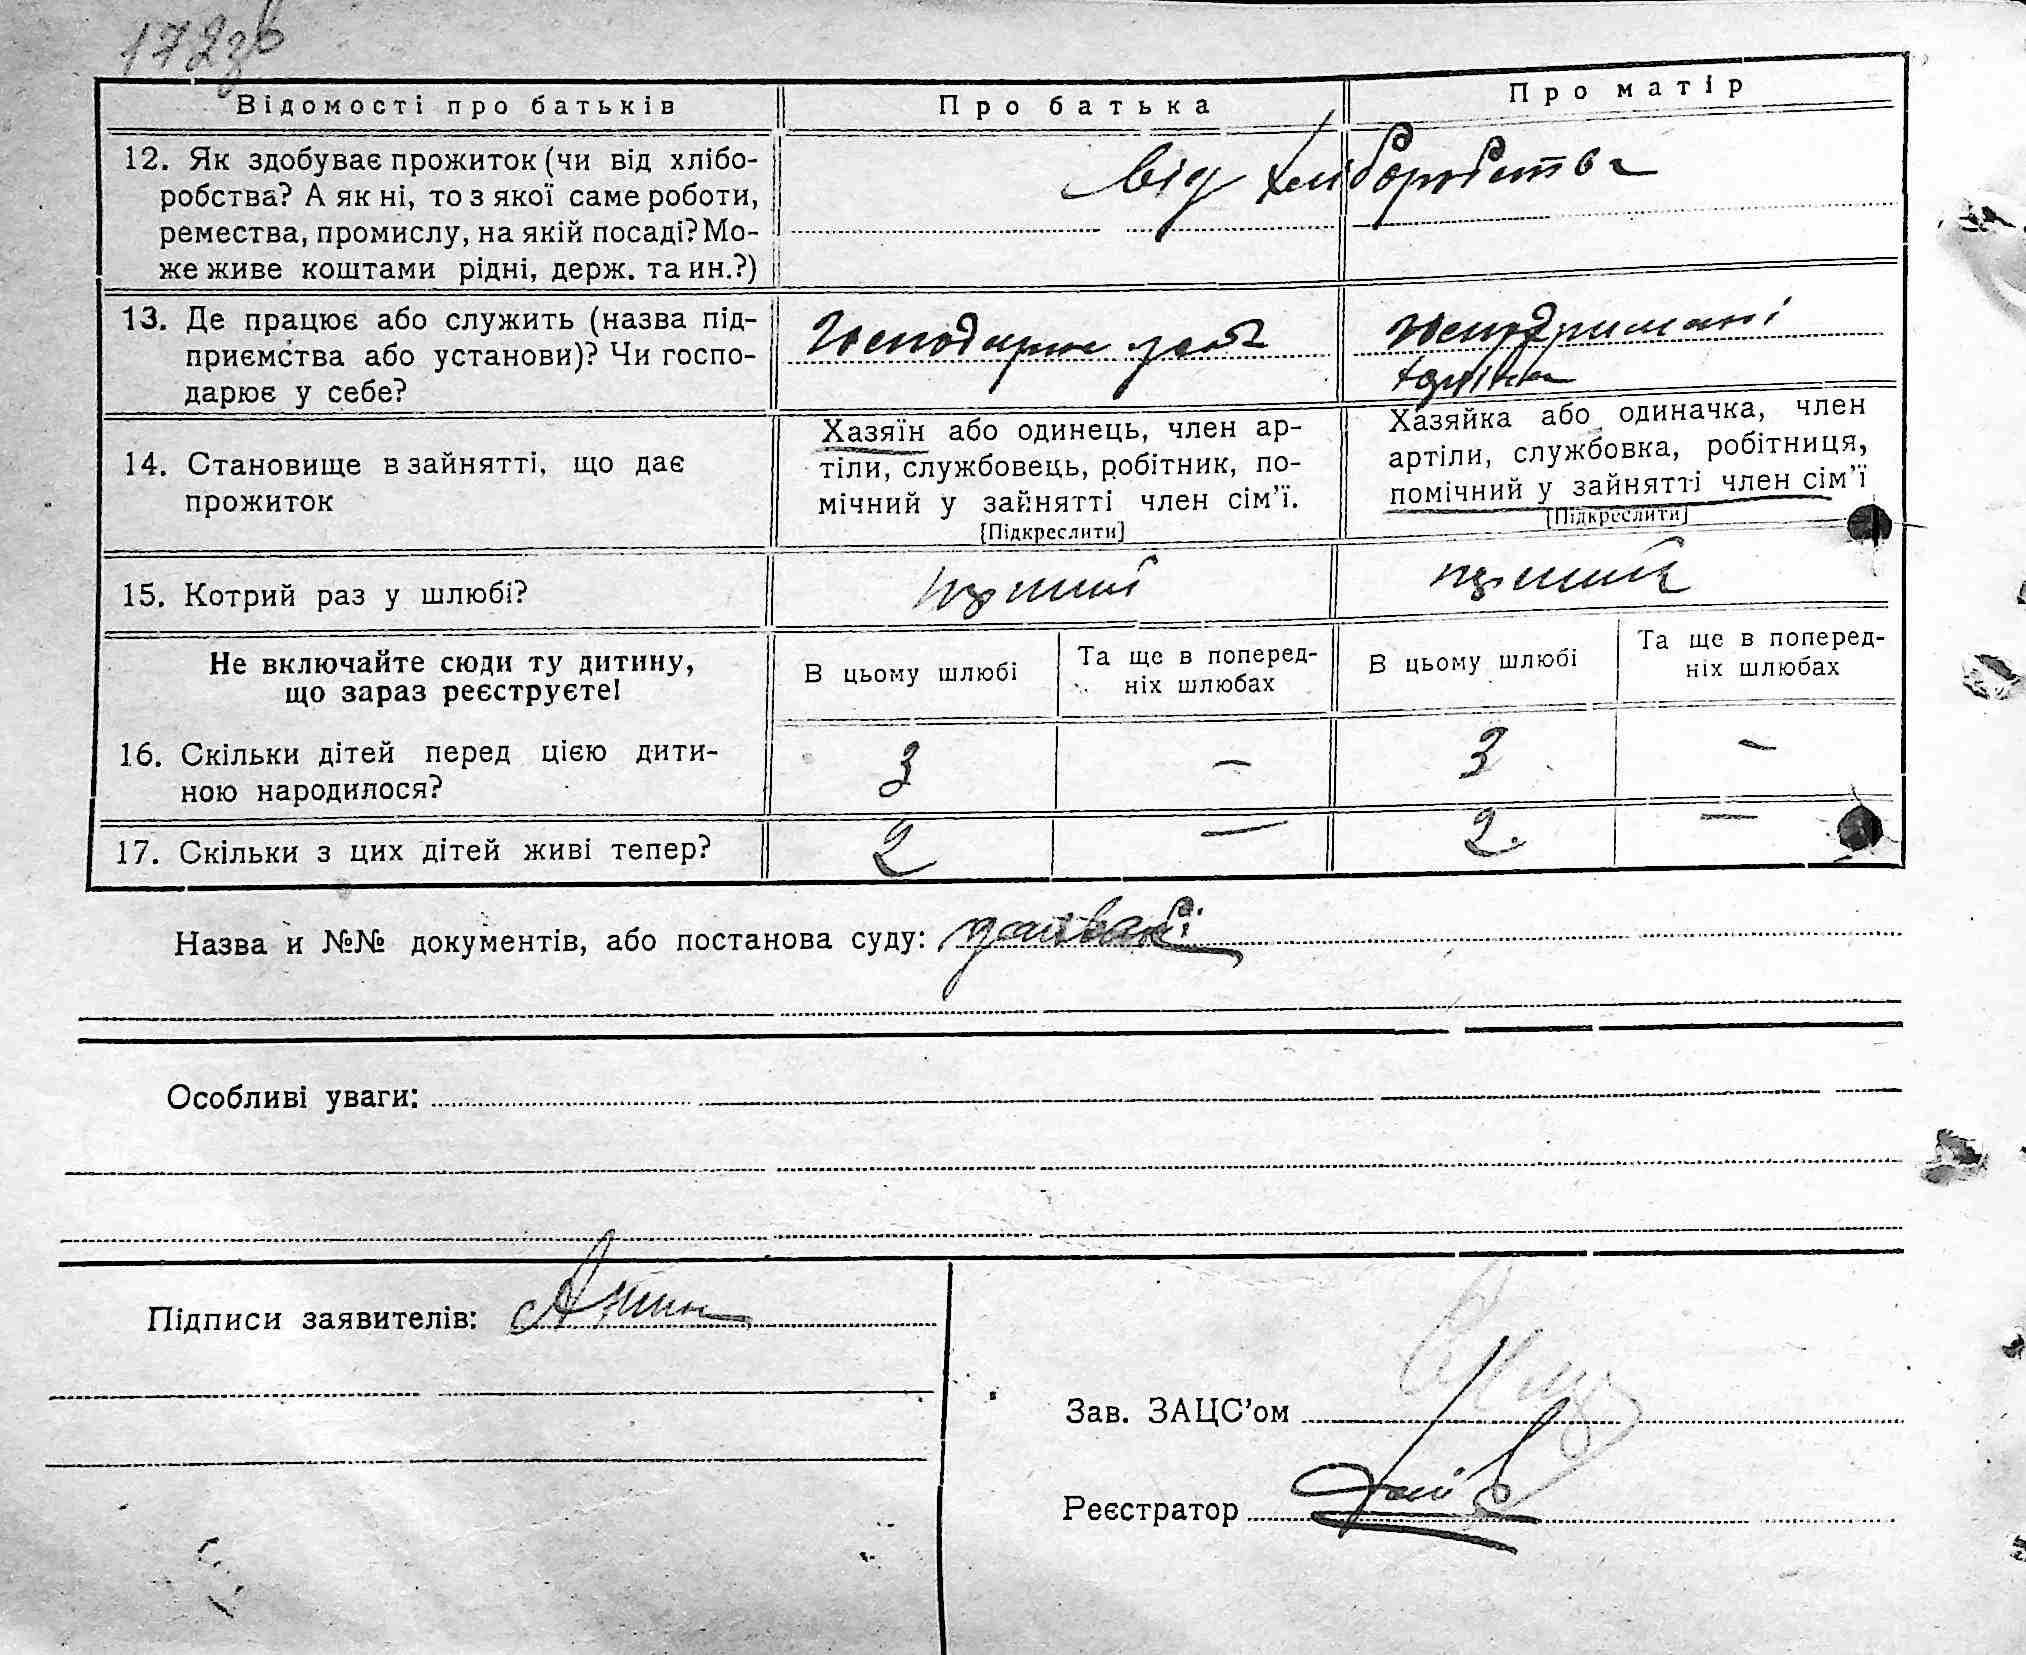 172зв
Відомості про батьків
Про батька
Про матір
12. Як здобуває прожиток (чи від хлібо-
робства? А як ні, то з якої саме роботи,
ремества, промислу, на якій посаді? Мо-
же живе коштами рідні, держ. та ин.?)
від хліборобства
13. Де працює або служить (назва під-
приємства або установи)? Чи госпо-
дарює у себе?
14. Становище в зайнятті, що дає
прожиток
Хазяїн або одинець, член ар-
тіли, службовець, робітник, по-
мічний у зайнятті член сім'ї.
[Підкреслити]
Хазяйка або одиначка, член
артіли, службовка, робітниця,
помічний у зайнятті член сім'ї
[Підкреслити]
15. Котрий раз у шлюбі?
перший
перший
Не включайте сюди ту дитину,
що зараз реєструєте!
В цьому шлюбі
Та ще в поперед-
ніх шлюбах
В цьому шлюбі
Та ще в поперед-
ніх шлюбах
16. Скільки дітей перед цією дити-
ною народилося?
3
—
3
—
17. Скільки з цих дітей живі тепер?
2
—
2.
—
Назва и №№ документів, або постанова суду:
Особливі уваги:
Підписи заявителів:
Зав. ЗАЦС'ом
Реєстратор